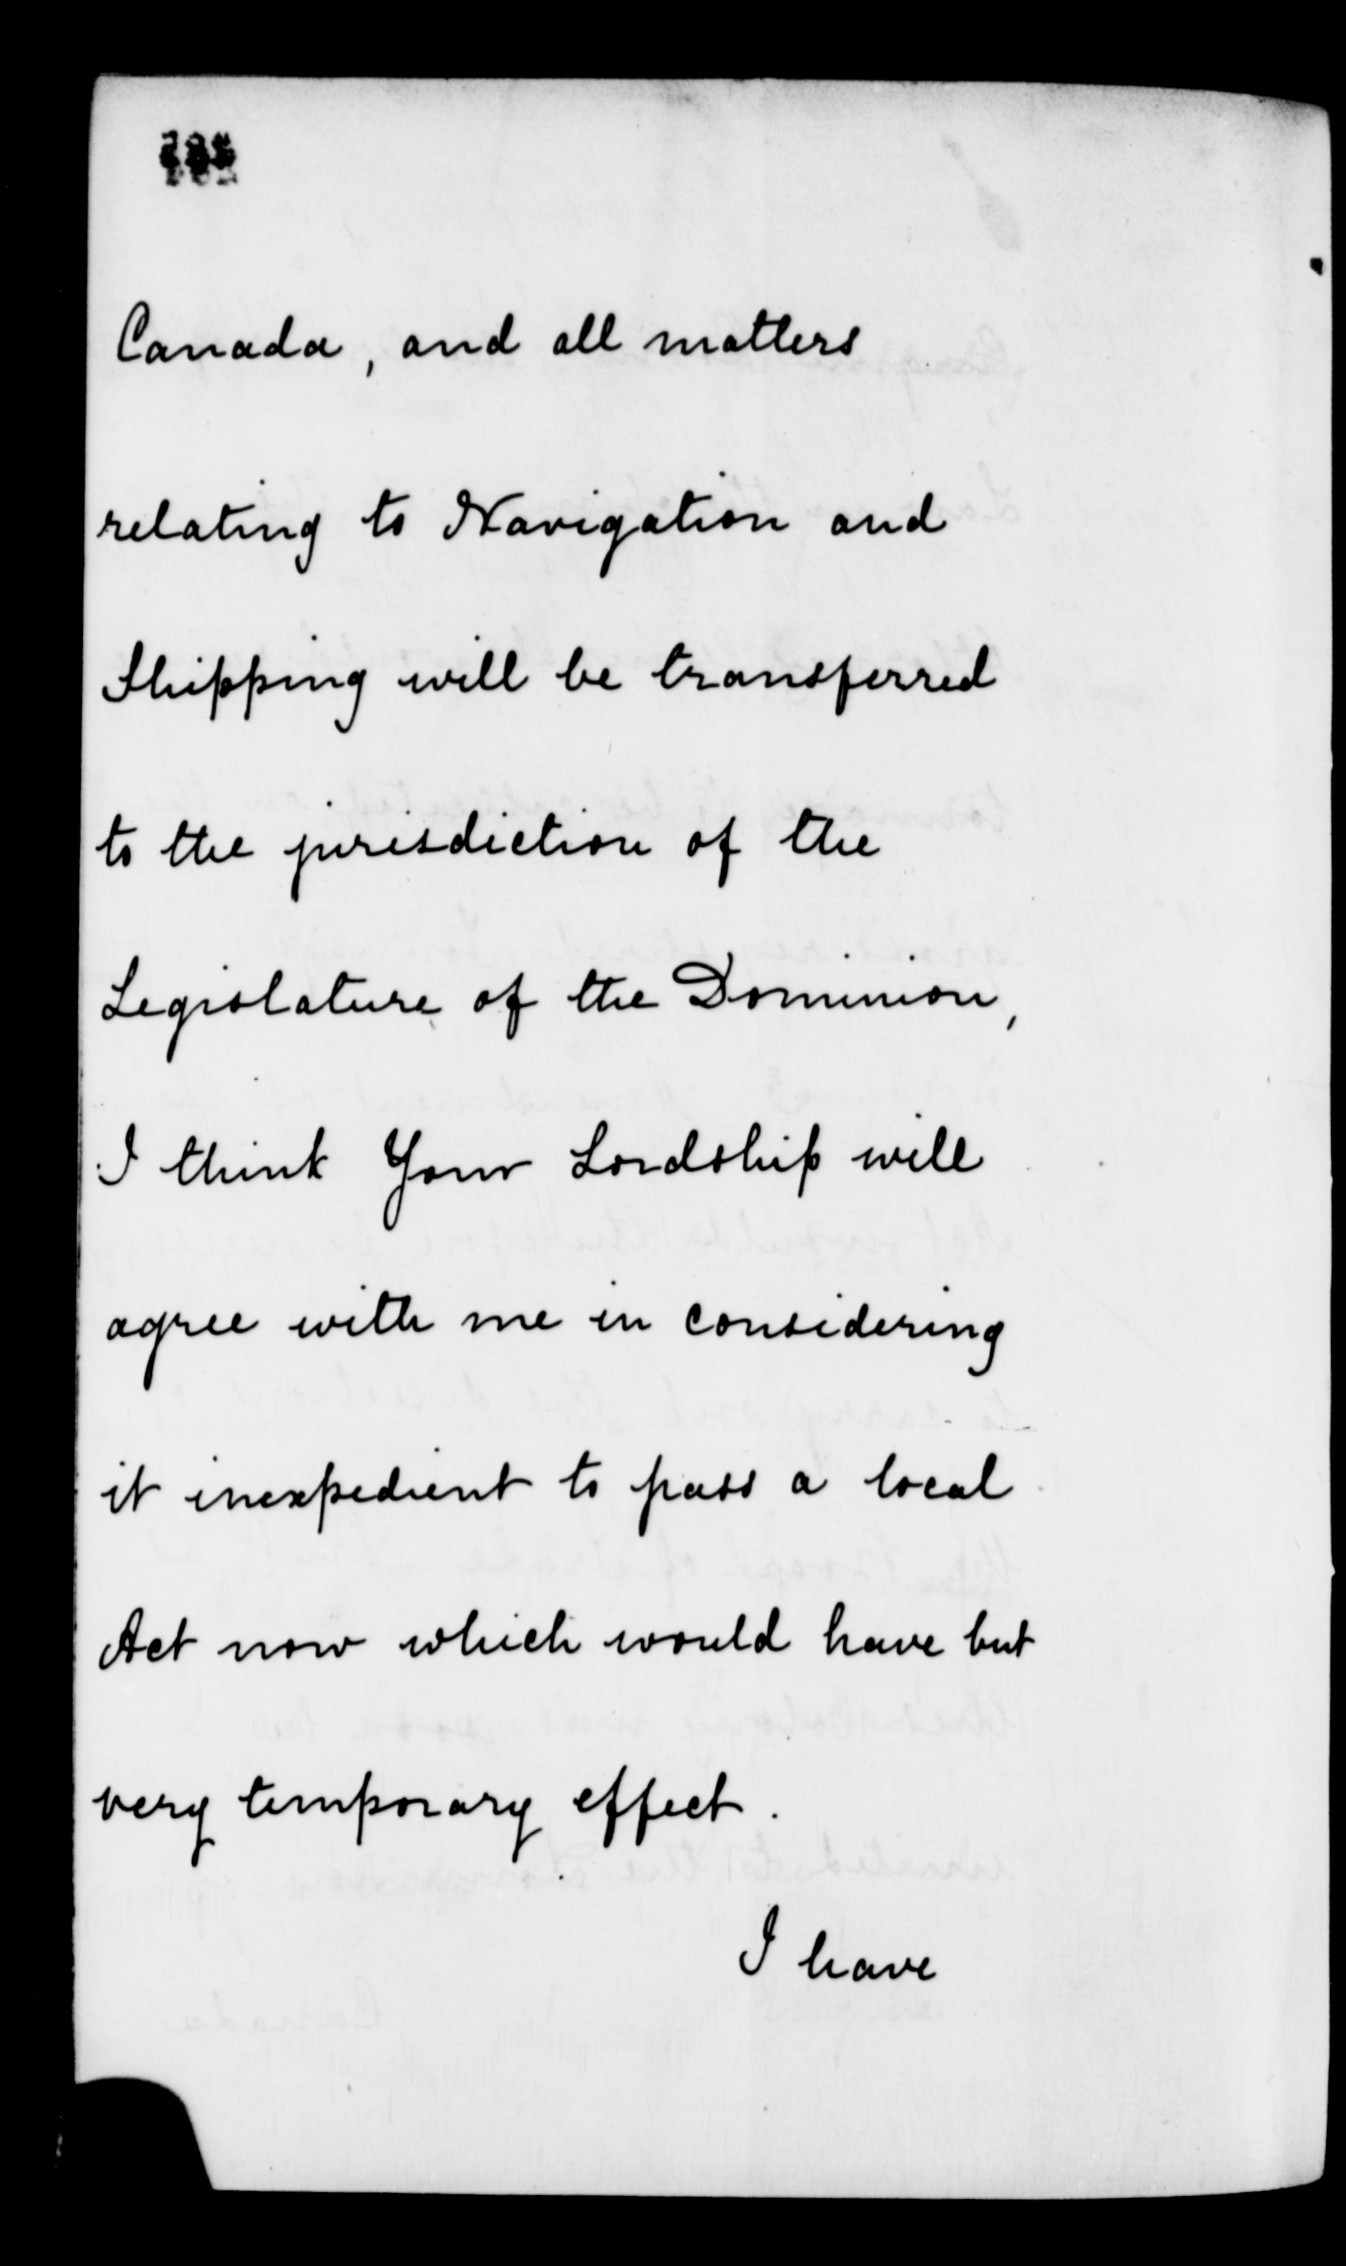 Canada, and all matters
relating to Navigation and
Shipping will be transferred
to the jurisdiction of the
Legislature of the Dominion,
I think Your Lordship will
agree with me in considering
it inexpedient to pass a local
Act now which would have but
very temporary effect.
I have